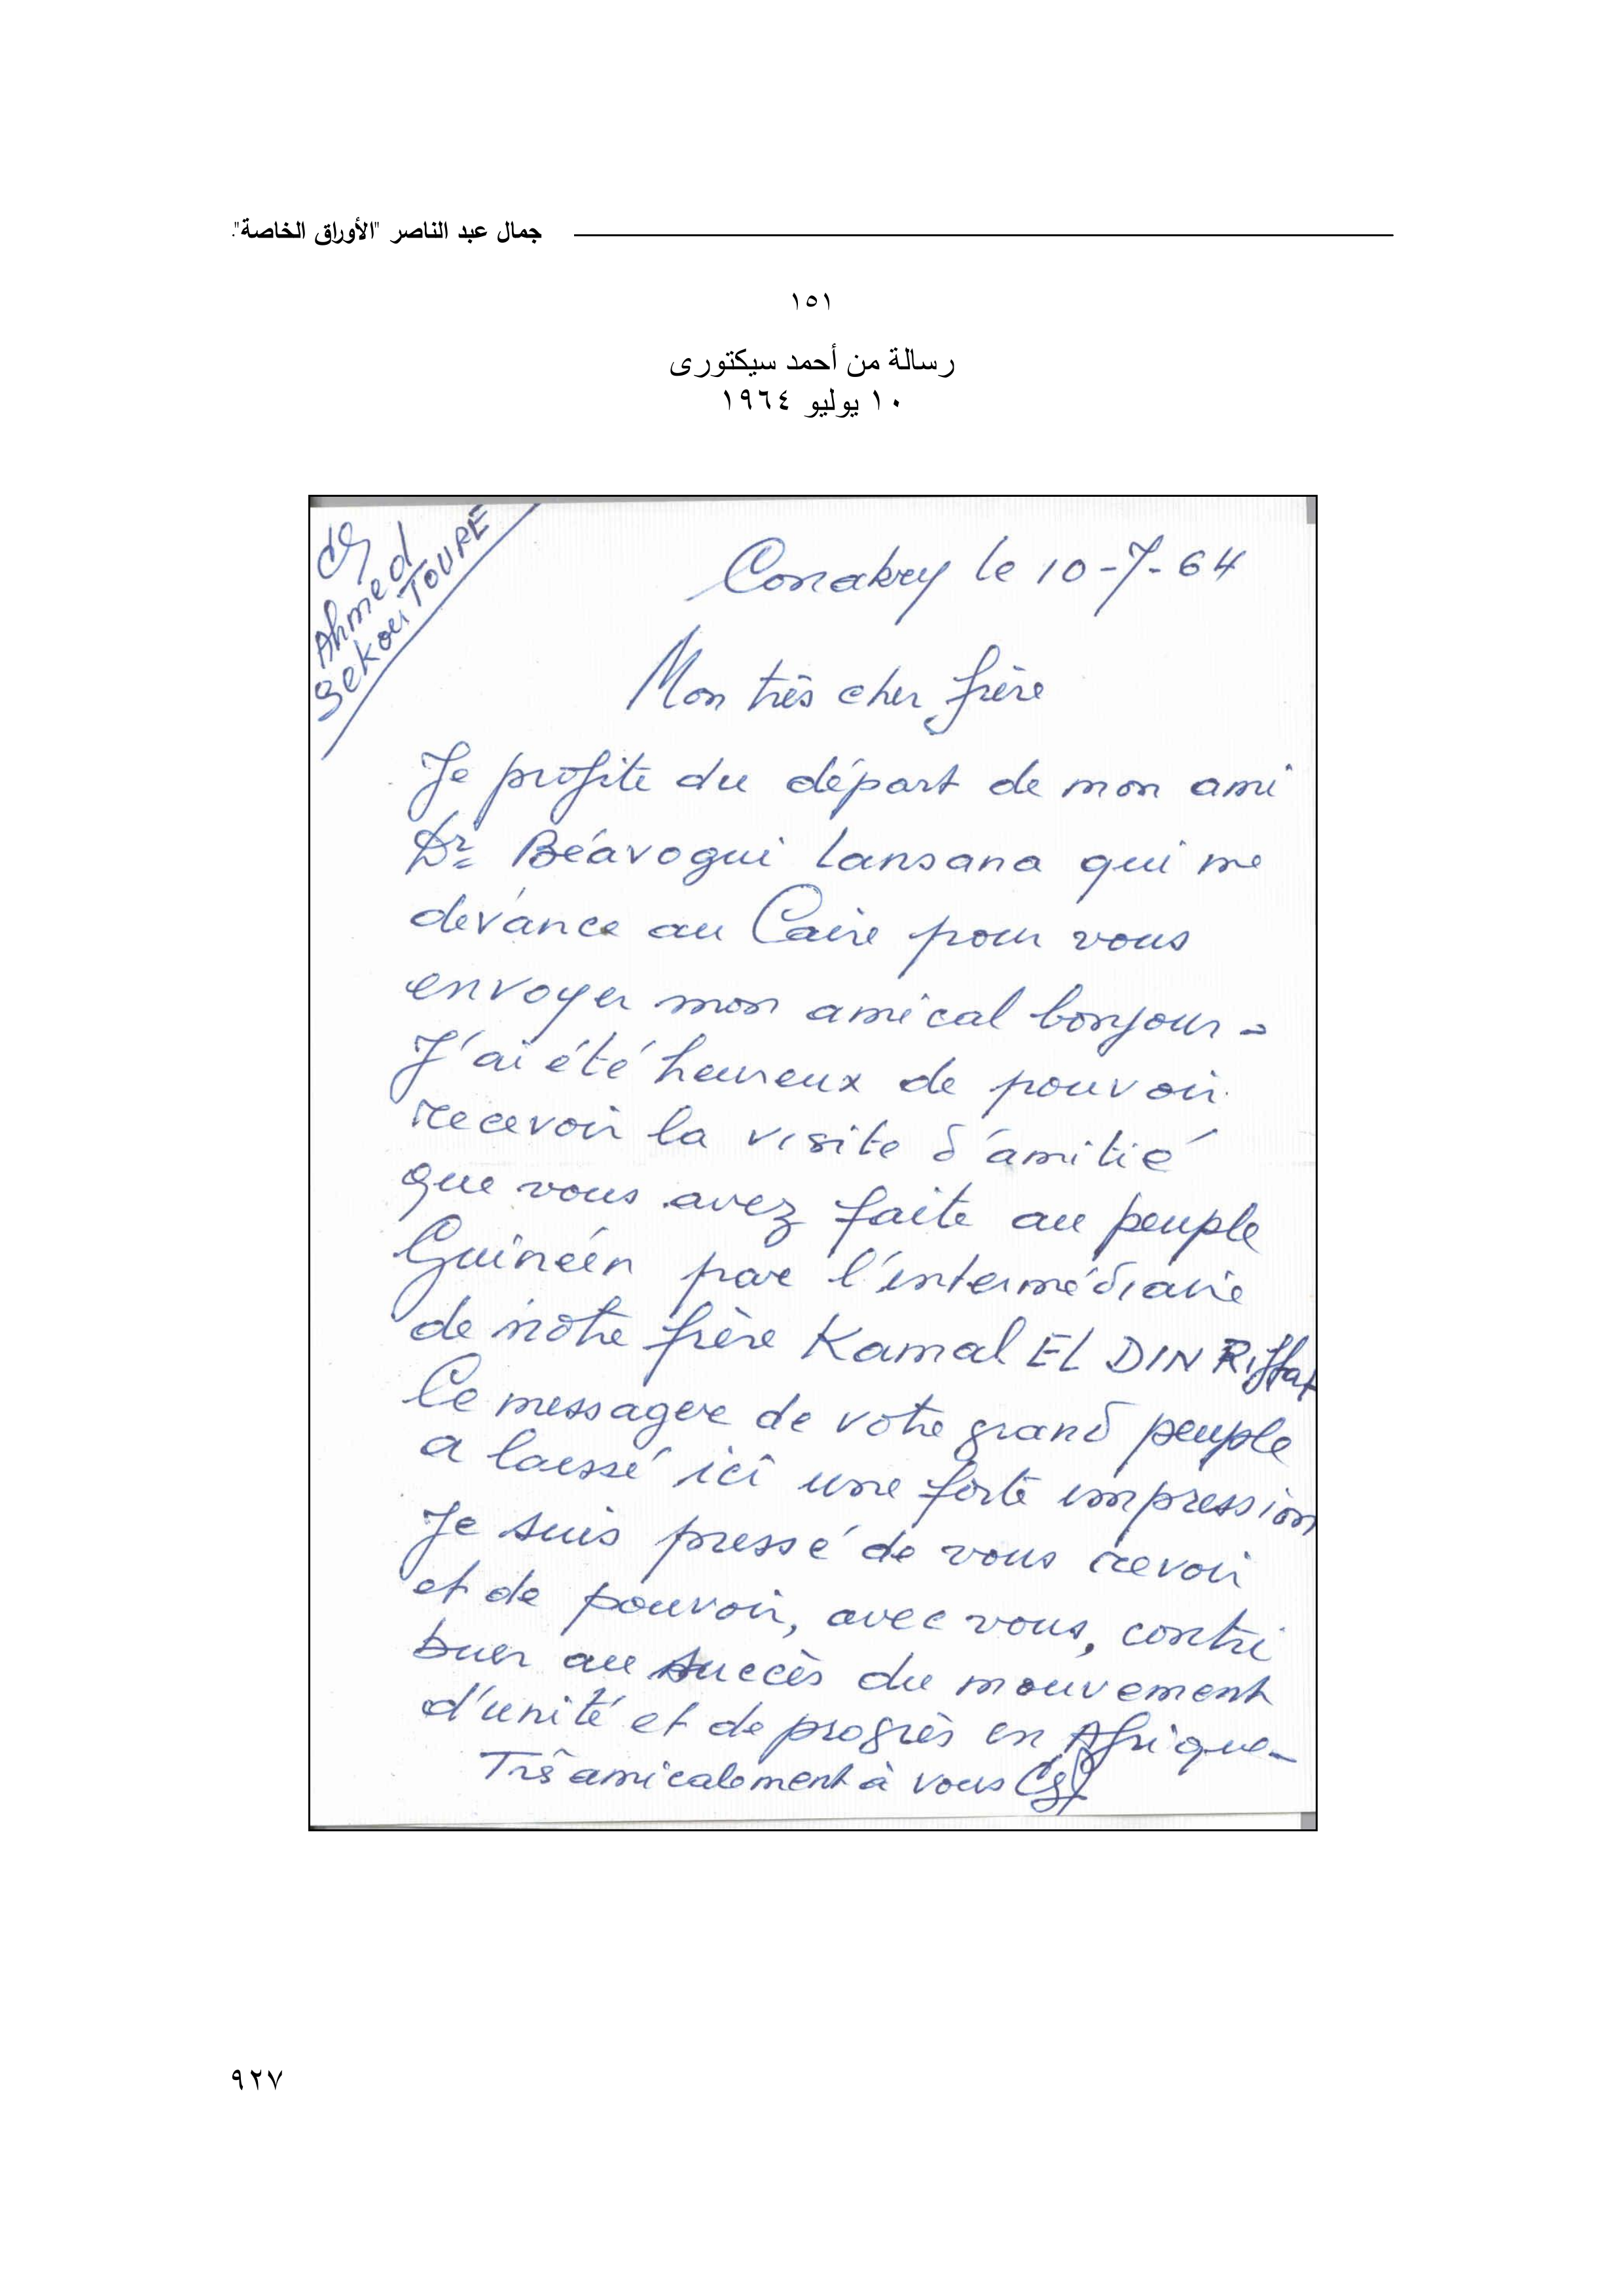 جمال عبد الناصر "الأوراق الخاصة".
١٥١
رسالة من أحمد سيكتورى
١٠ يوليو ١٩٦٤
Ahmed
Sekou TOURE
Conakry le 10-7-64
Mon très cher frère
Je profite du départ de mon ami
Dr Béavogui Lansana qui me
devance au Caire pour vous
envoyer mon amical bonjour -
J'ai été heureux de pouvoir
recevoir la visite d'amitié
que vous avez faite au peuple
Guinéen par l'intermédiaire
de notre frère Kamal EL DIN Riffat
Ce messager de votre grand peuple
a laissé ici une forte impression
Je suis pressé de vous revoir
et de pouvoir, avec vous, contri
buer au succès du mouvement
d'unité et de progrès en Afrique -
Très amicalement à vous
٩٢٧